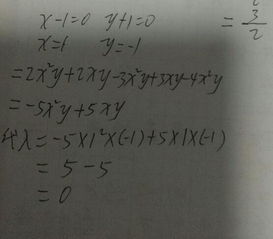 x-1=0 y+1=0
x=1 y=-1
=2x²y+2xy-3x²y+3xy-4x²y
=-5x²y+5xy
代入=-5×1²×(-1)+5×1×(-1)
=5-5
=0
=
3
2